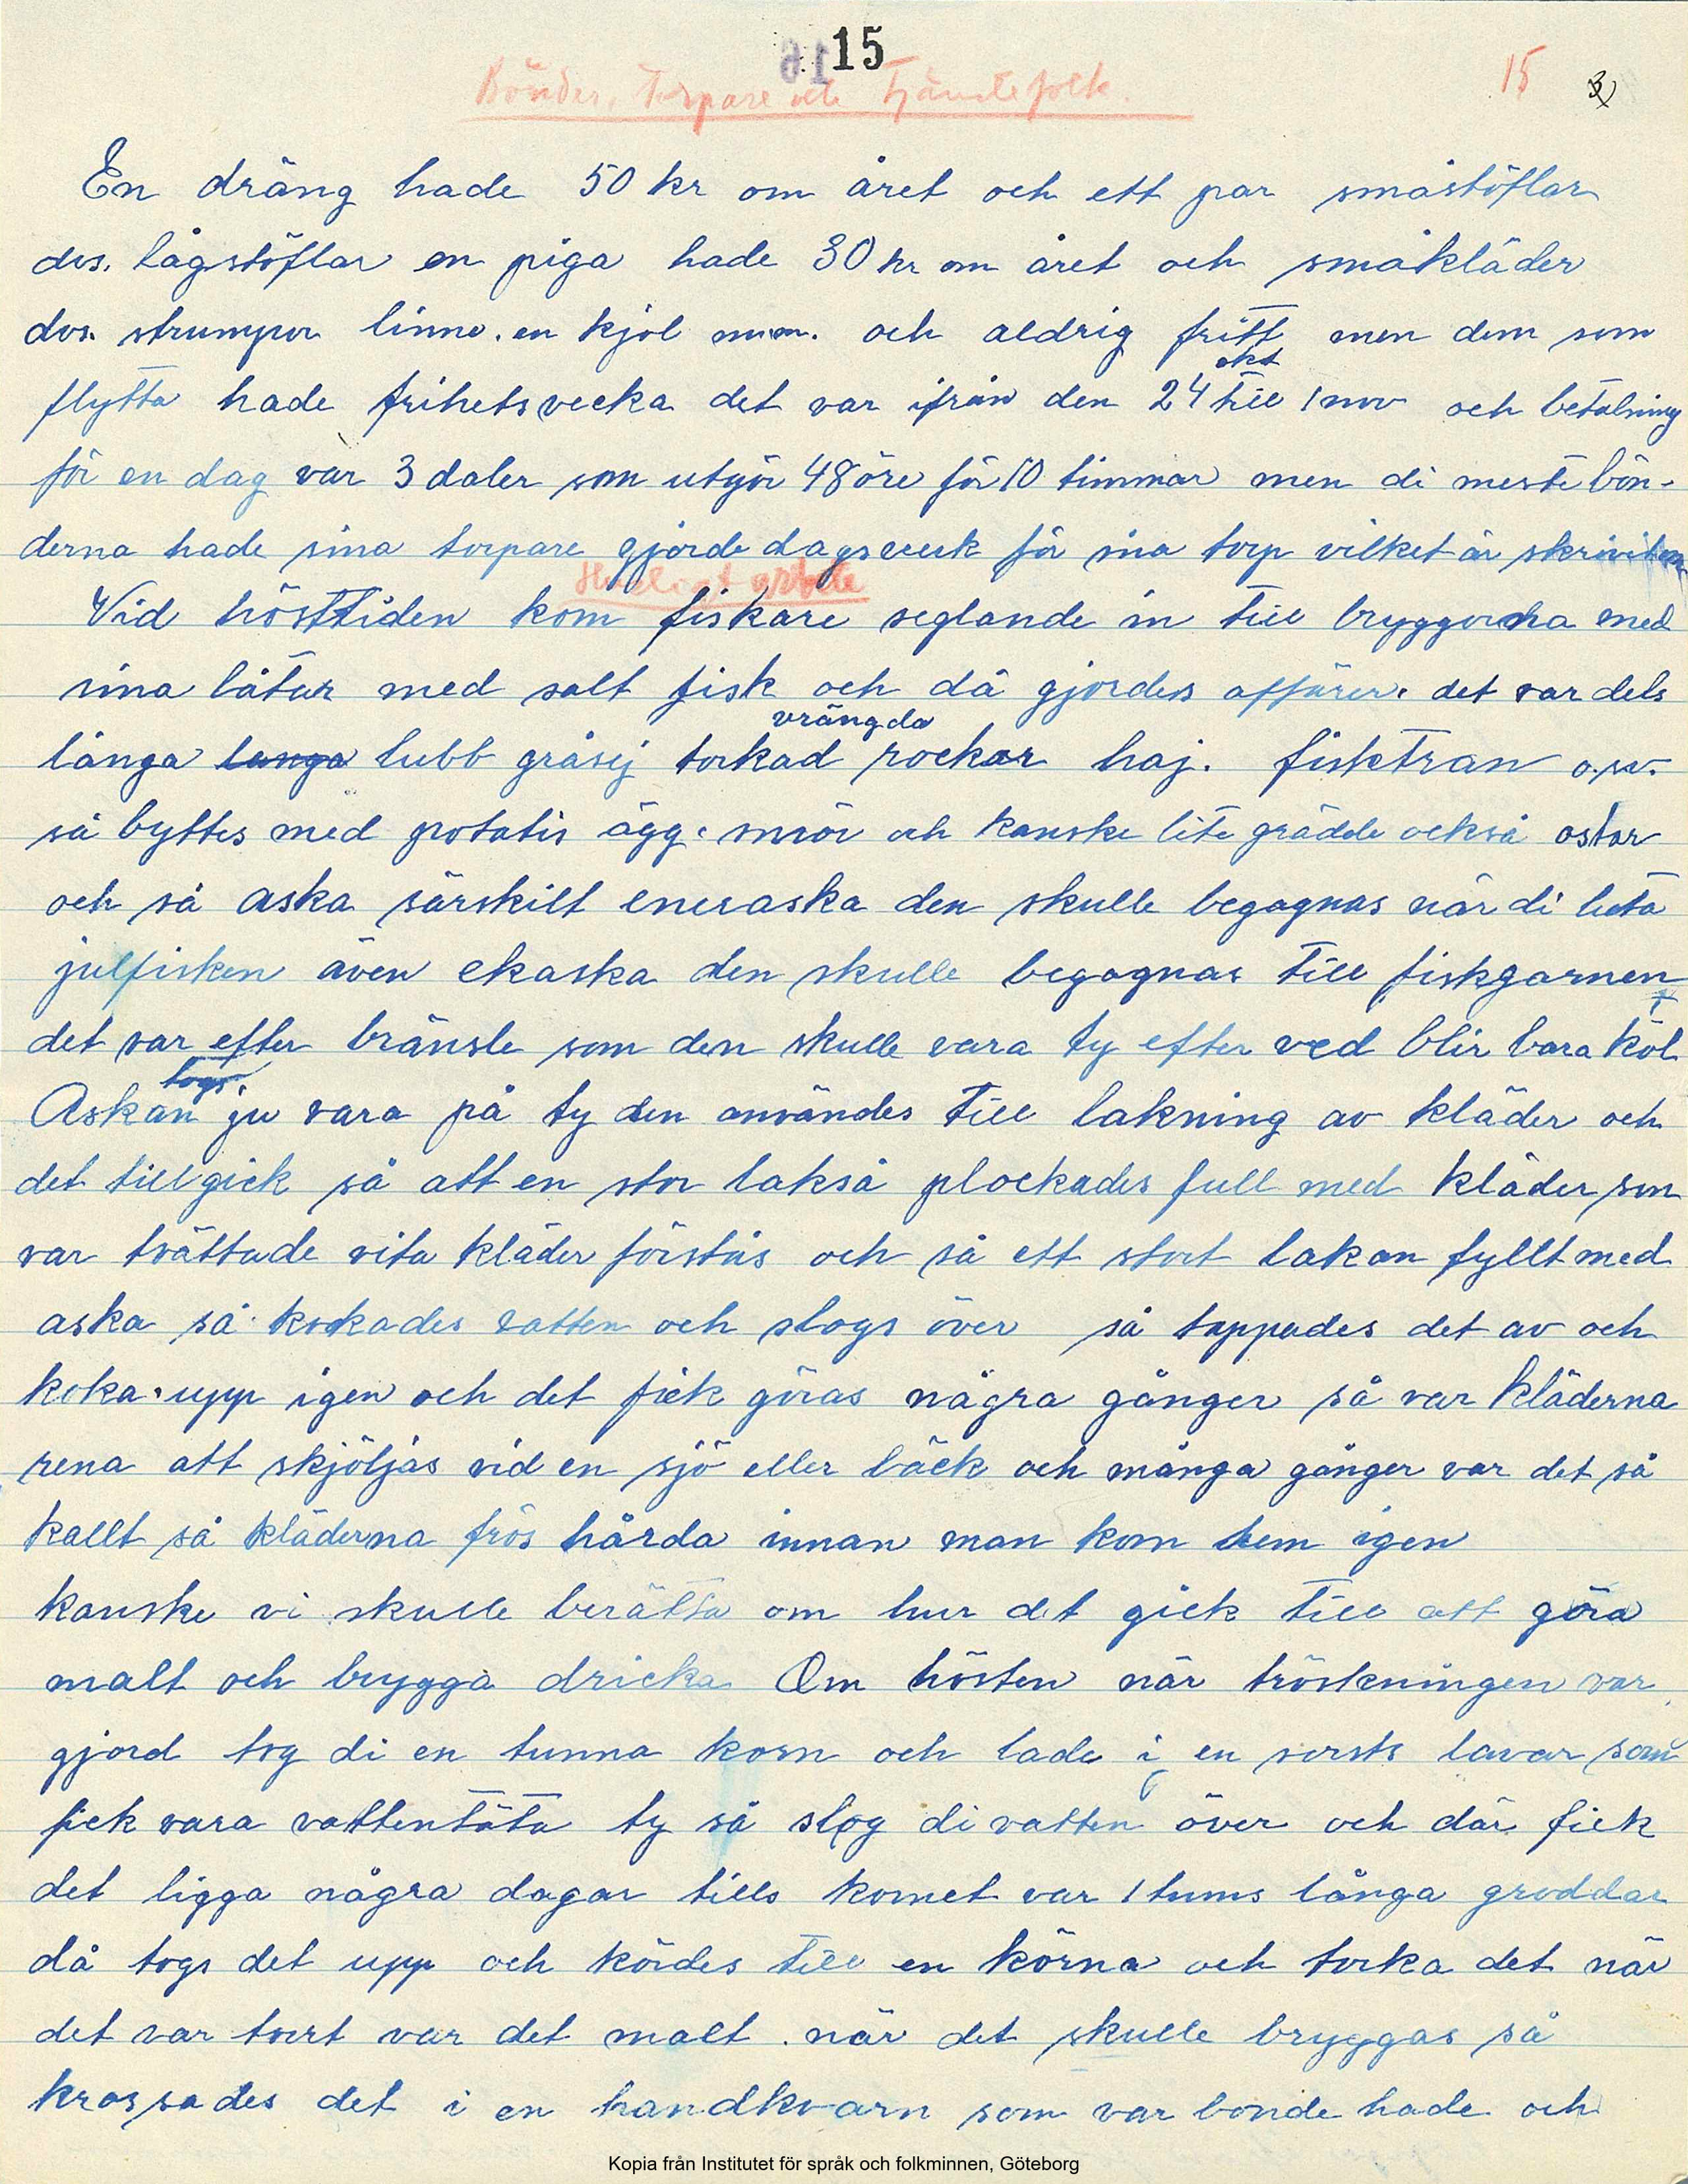 15
Bönder, Torpare och Tjänstefolk.
15
3
En dräng hade 50 kr om året och ett par småstöflar
dvs. lågstöflar en piga hade 30 kr om året och småkläder
dvs. strumpor linne. en kjol m.m. och aldrig fritt men dem som
flytta hade frihetsvecka det var ifrån den 24 okt till 1 nov och betalning
för en dag var 3 daler som utgör 48 öre för 10 timmar men di meste bön-
derna hade sina torpare gjorde dagsverk för sina torp vilket är skrivit om
Husligt arbete
Vid hösttiden kom fiskare seglande in till bryggorna med
sina båtar med salt fisk och då gjordes affärer. det var dels
långa lubb gråsej torkad vrängda rockor haj. fisktran o.s.v.
så byttes med potatis ägg. smör och kanske lite grädde också ostar
och så aska särskilt eneraska den skulle begagnas när di luta
julfisken även ekaska den skulle begagnas till fiskgarnen
det var efter bränsle som den skulle vara ty efter ved blir bara kol
Askan togs ju vara på ty den användes till lakning av kläder och
det tillgick så att en stor lakså plockades full med kläder som
var tvättade vita kläder förstås och så ett stort lakan fyllt med
aska så kokades vatten och slogs över så tappades det av och
koka. upp igen och det fick göras några gånger så var kläderna
rena att skjöljas vid en sjö eller bäck och många gånger var det så
kallt så kläderna frös hårda innan man kom hem igen
kanske vi skulle berätta om hur det gick till att göra
malt och brygga dricka Om hösten när tröskningen var
gjord tog di en tunna korn och lade i en sorts lavar som
fick vara vattentäta ty så slog di vatten över och där fick
det ligga några dagar tills kornet var 1 tums långa groddar
då togs det upp och kördes till en körna och torka det när
det var tort var det malt. när det skulle bryggas så
krossades det i en handkvarn som var bonde hade och
Kopia från Institutet för språk och folkminnen, Göteborg